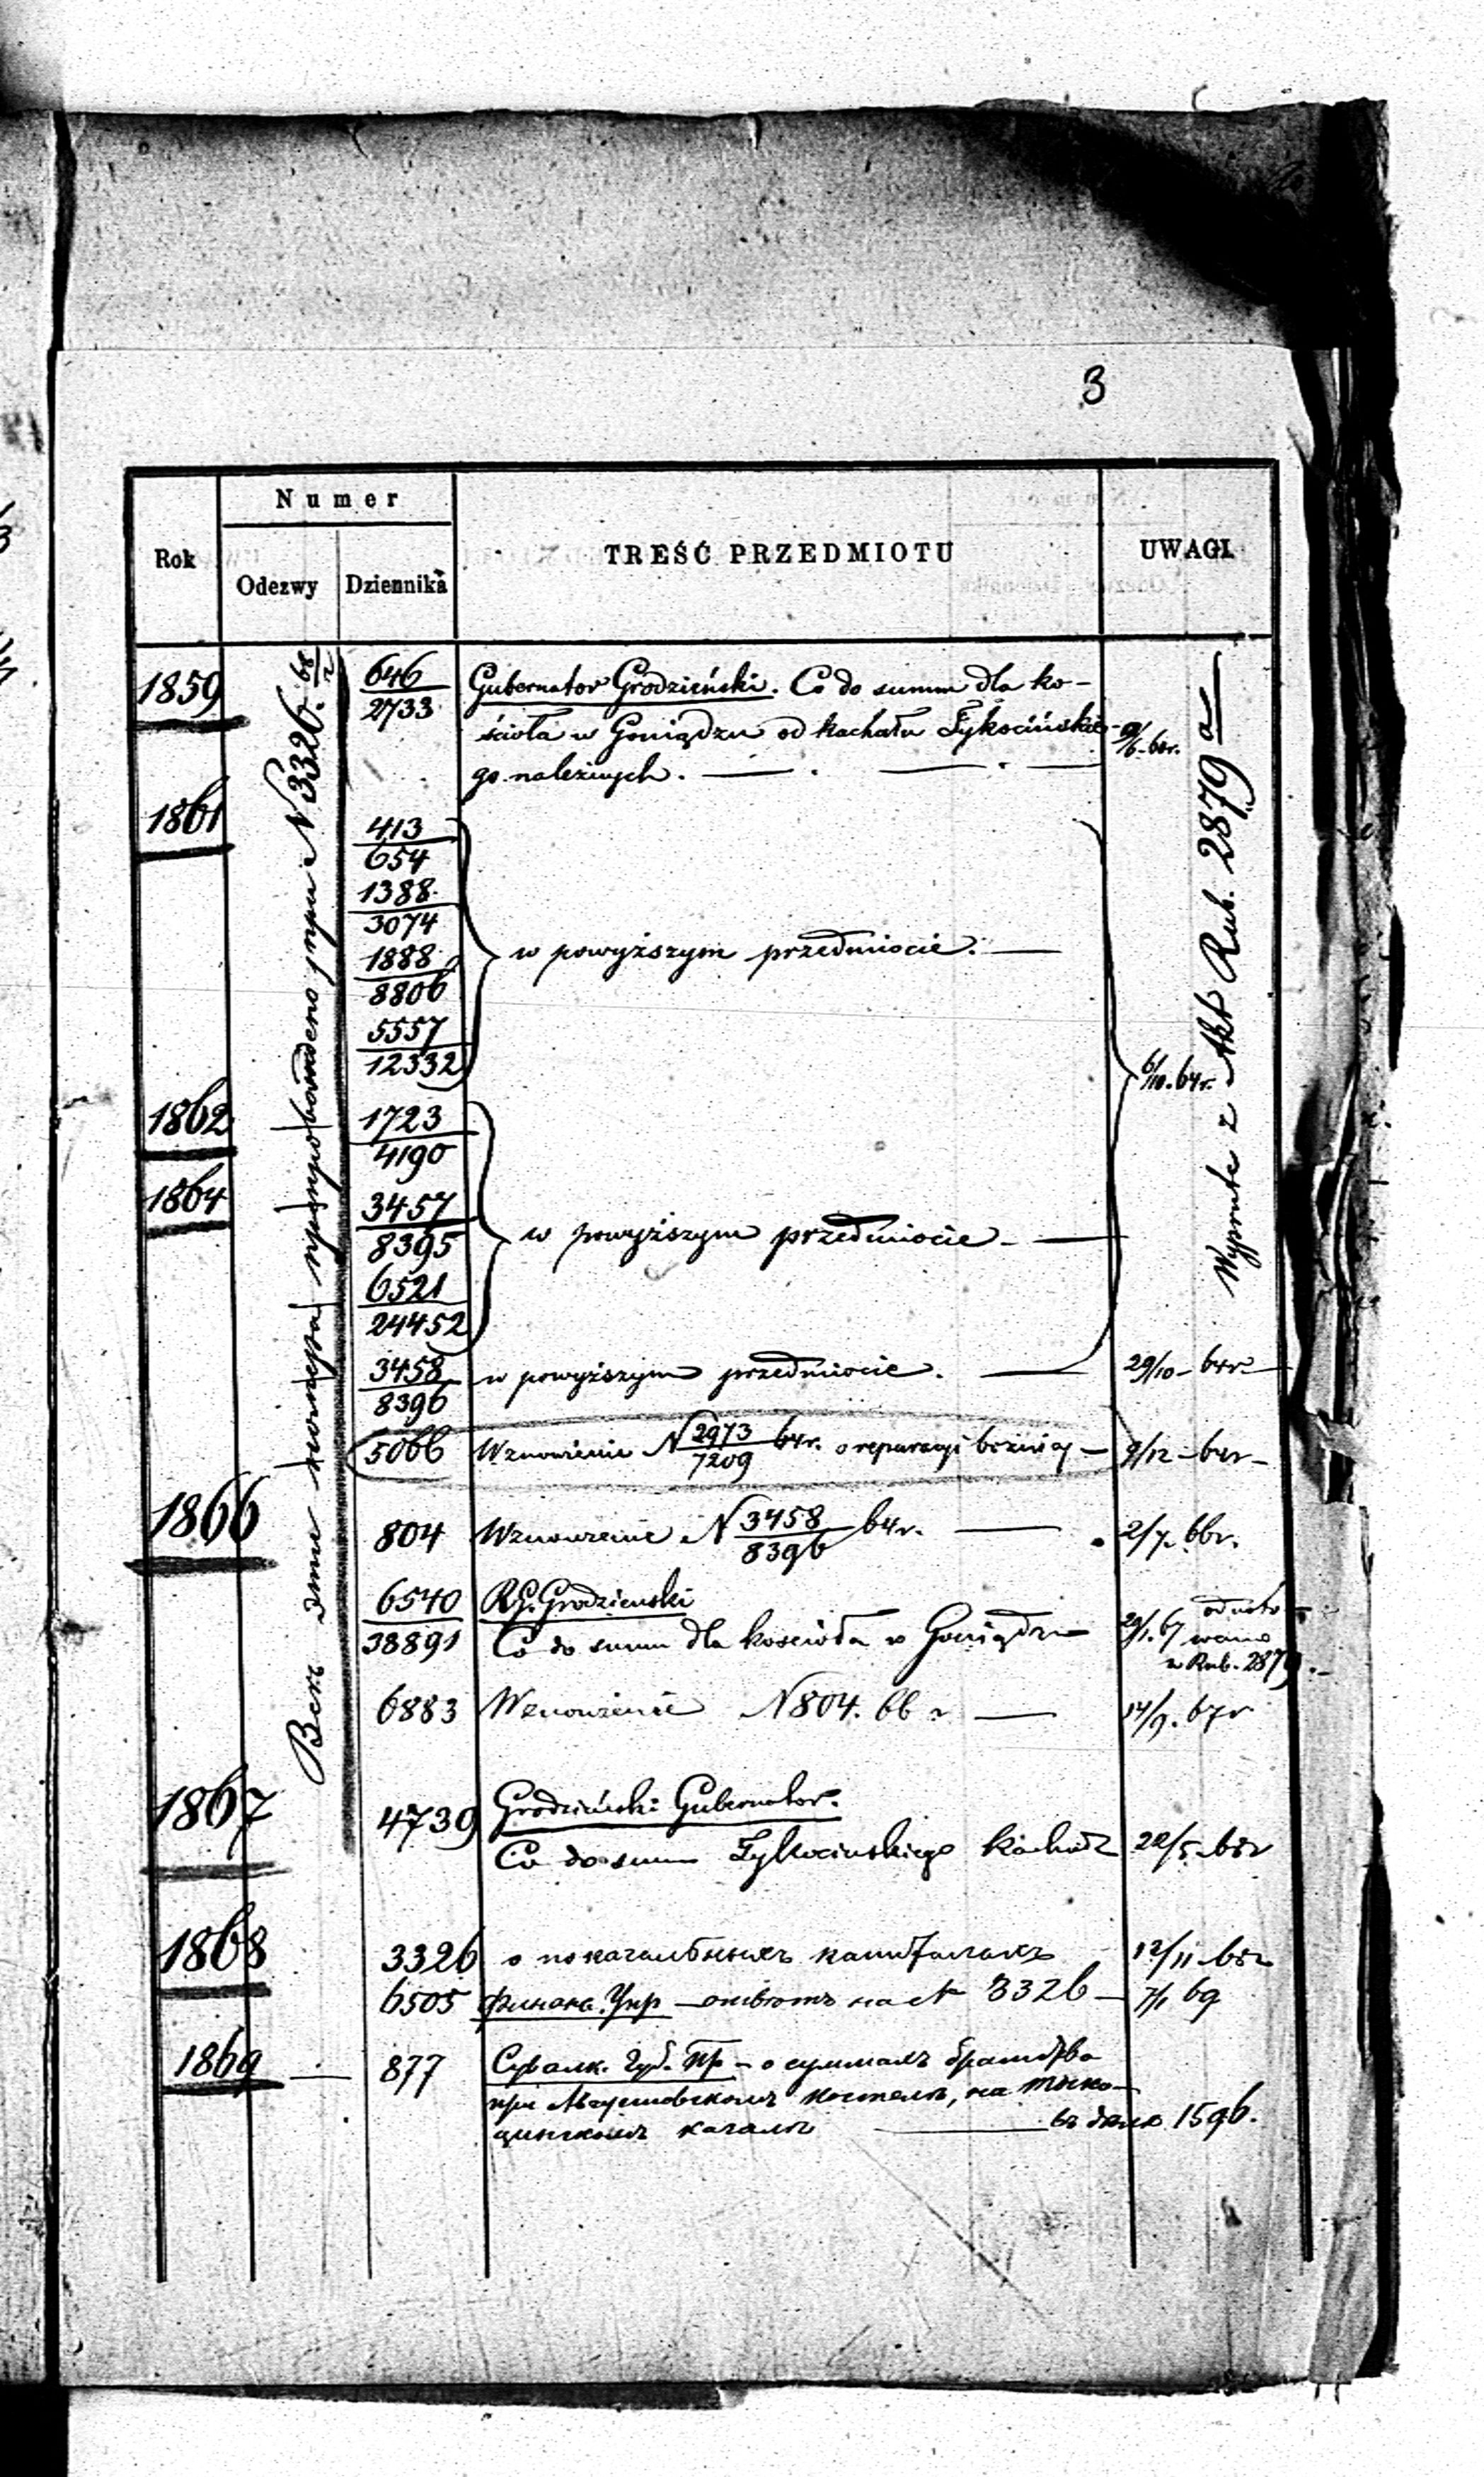 3
Numer
Rok
Odezwy
Dziennika
TREŚĆ PRZEDMIOTU
UWAGI.
1859
646
2733
Gubernator Grodzieński. Co do summ dla ko-
ścioła w Goniądzu od kachału Tykocińskie-
go należnych.
1861
413
654
1388
3074
1888
8806
5557
12332
w powyższym przedmiocie.
6/10. 64r.
1862
1723
4190
1864
3457
8395
6521
24452
w powyższym przedmiocie
3458
8396
w powyższym przedmiocie.
29/10 - 64r
5066
Wznowienie N 2973/7209 64r. o reparacyi bożnicy
9/12 - 64r
1866
804
Wznowienie N 3458/8396 64r.
2/7. 66r.
6540
38891
R.G. Grodzieński
Co do summ dla kościoła w Goniądzu
odnoto-
wano
w Rub. 2879.
6883
Wznowienie N 804. 66 r
14/9. 67r
1867
4739
Grodzieński Gubernator.
Co do summ Tykocińskiego Kachału
22/5 - 68r
1868
3326
о покагальныхъ капиталахъ
12/11 - 68r
6505
Финанс. Упр - отвѣтъ на N 3326
7/1 69
1869
877
Сувалк. Губ. Пр - о суммахъ братства
при Августовскомъ костелѣ, на Тыко-
цинскомъ кагалѣ
въ дѣлѣ 1596.
при N 3326. 68/r
Wyprute z Akt Rub. 2879 a